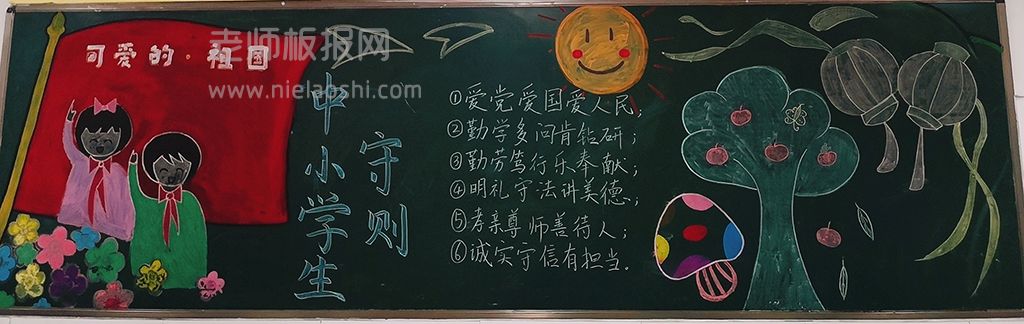 可爱的·祖国
老师板报网
www.nielaoshi.com
中小学生
守则
①爱党爱国爱人民；
②勤学多问肯钻研；
③勤劳笃行乐奉献；
④明礼守法讲美德；
⑤孝亲尊师善待人；
⑥诚实守信有担当。